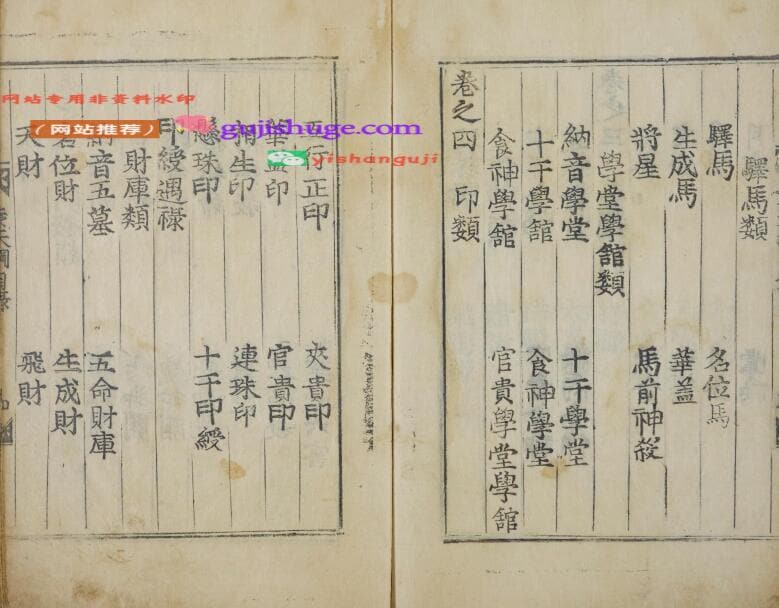 驛馬類
驛馬 名位馬
生成馬 華盖
將星 馬前神殺
學堂學舘類
納音學堂 十干學堂
十干學舘 食神學堂
食神學舘 官貴學堂學舘
卷之四 印類
五行正印 夾貴印
華盖印 官貴印
相生印 連珠印
懸珠印 十干印綬
印綬遇祿
財庫類
納音五墓 五命財庫
名位財 生成財
天財 飛財
网站专用非资料水印
（网站推荐）
gujishuge.com
yishanguji